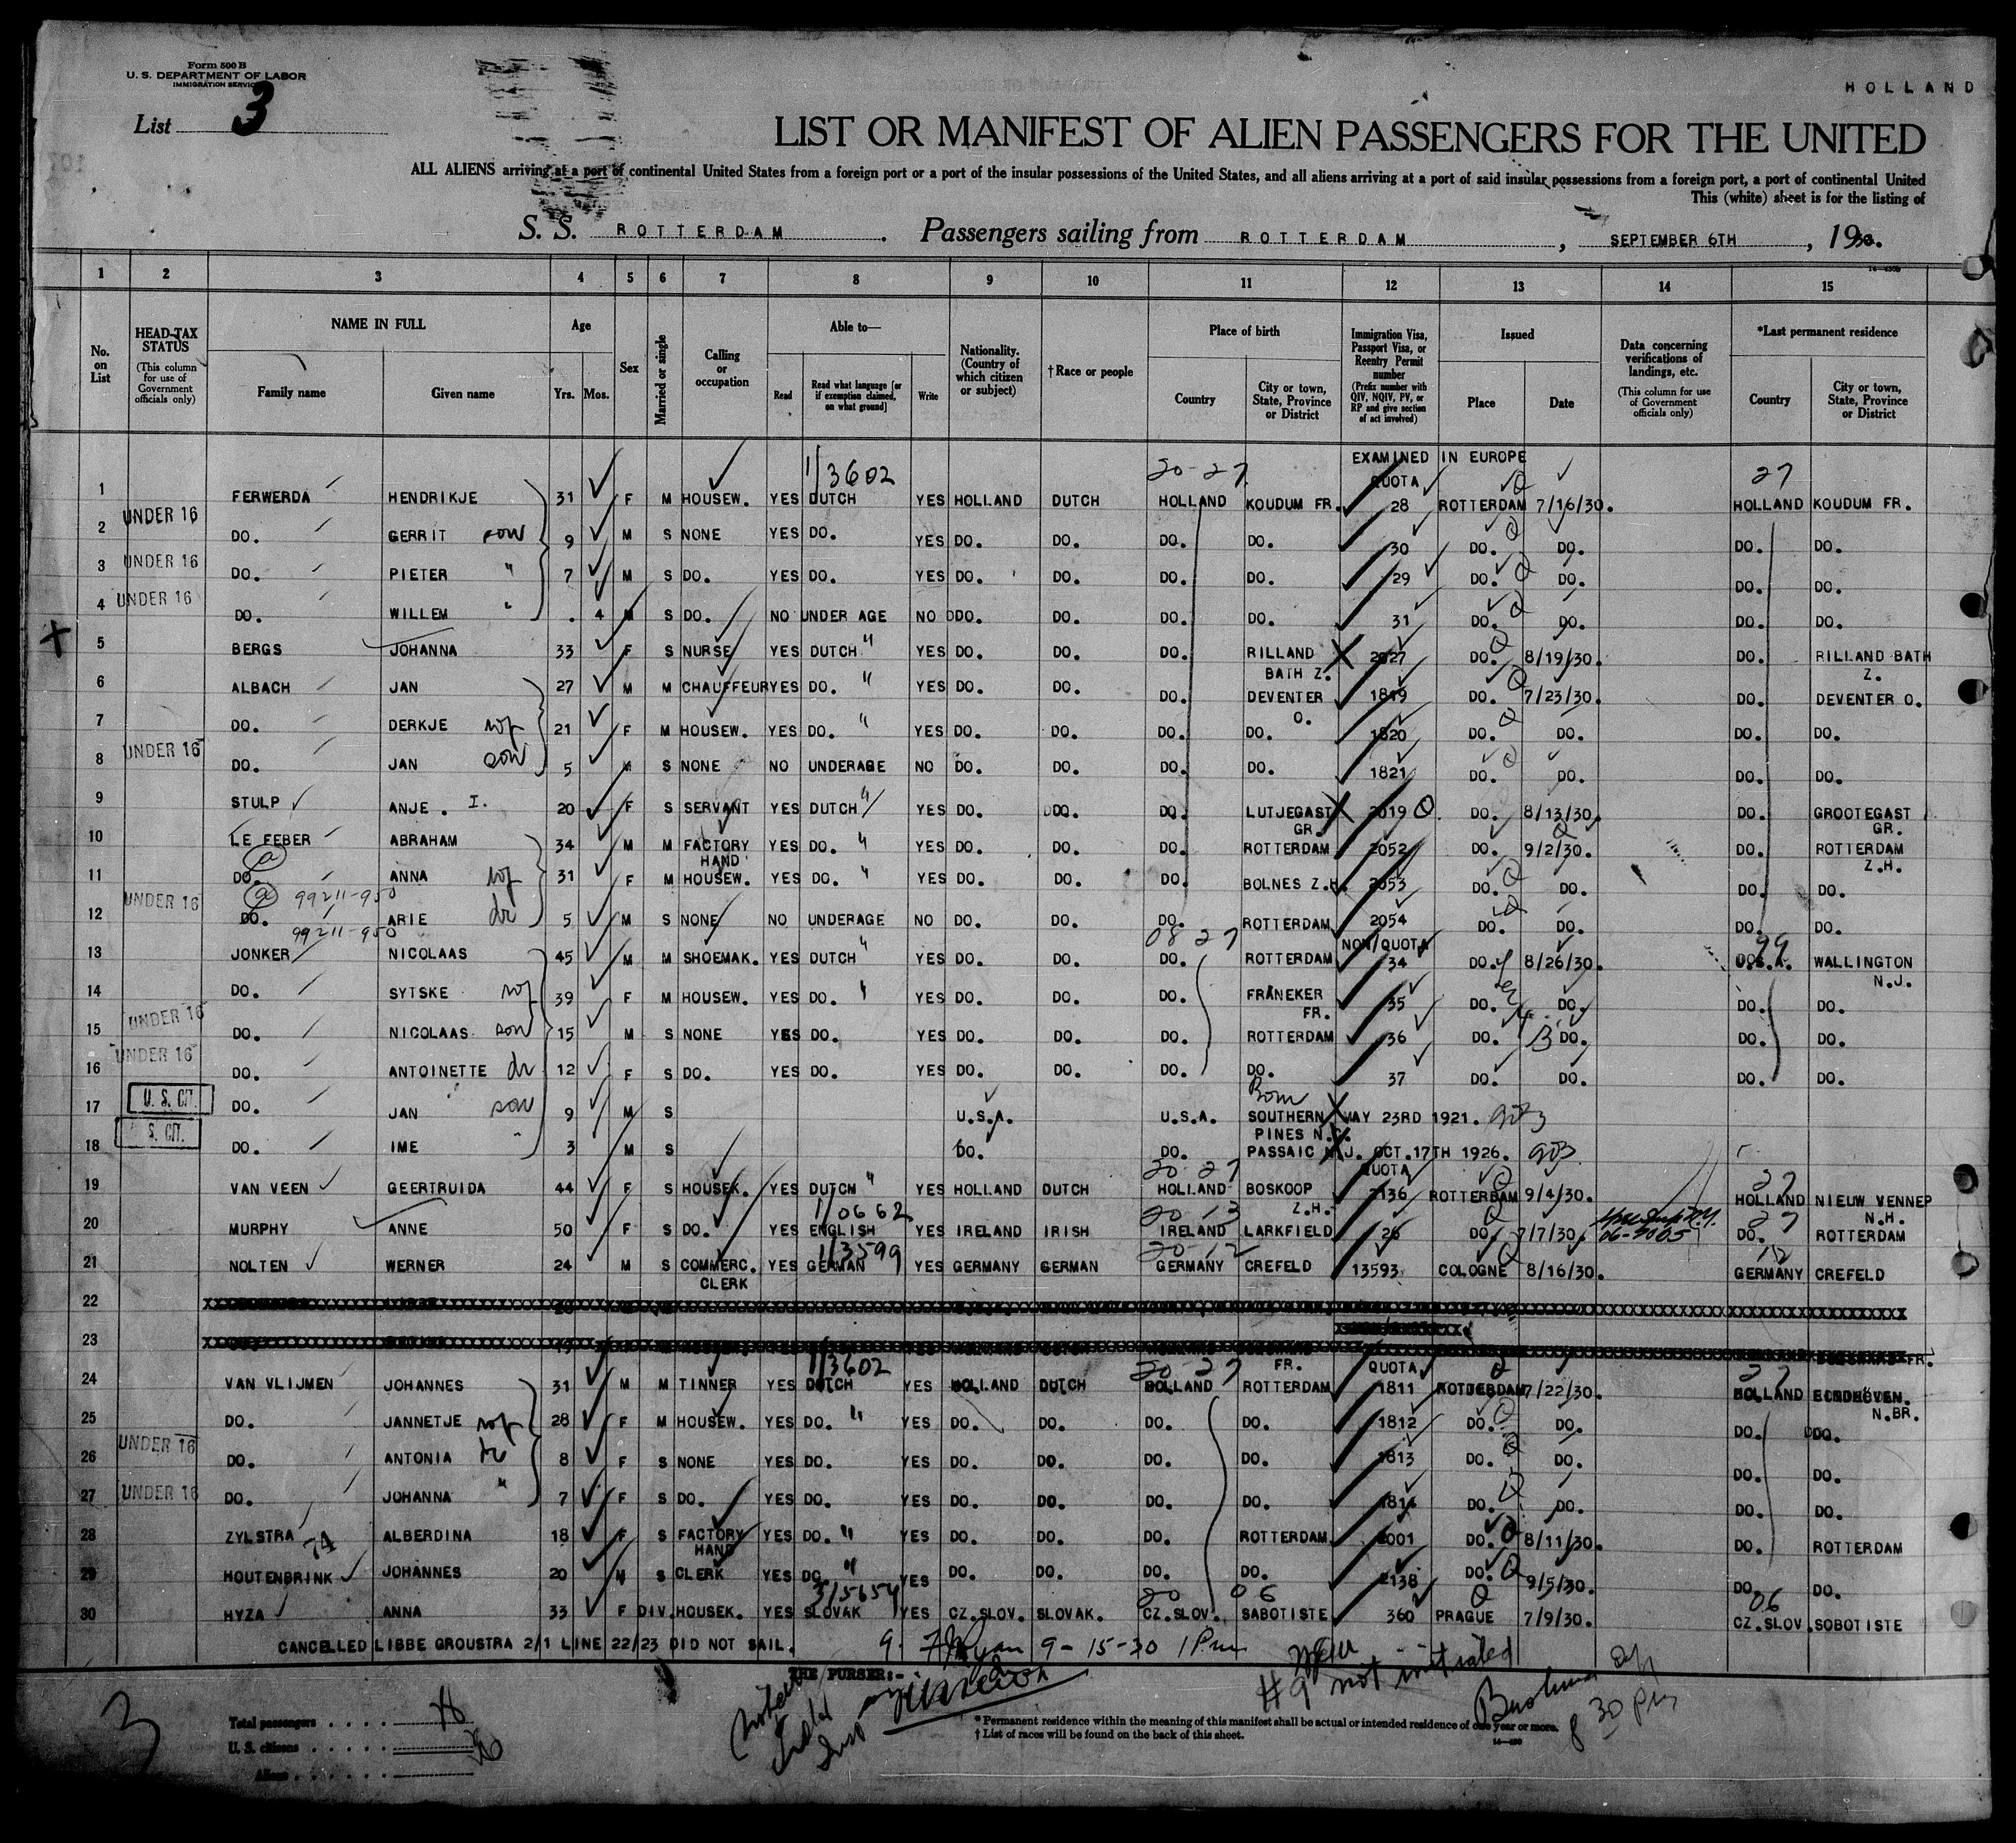 Form 500 B
U. S. DEPARTMENT OF LABOR
IMMIGRATION SERVICE
HOLLAND
List 3
LIST OR MANIFEST OF ALIEN PASSENGERS FOR THE UNITED
ALL ALIENS arriving at a port of continental United States from a foreign port or a port of the insular possessions of the United States, and all aliens arriving at a port of said insular possessions from a foreign port, a port of continental United
This (white) sheet is for the listing of
S. S. ROTTERDAM . Passengers sailing from ROTTERDAM , SEPTEMBER 6TH , 1930.
1 2 3 4 5 6 7 8 9 10 11 12 13 14 15
No. on List
HEAD-TAX STATUS (This column for use of Government officials only)
NAME IN FULL Family name Given name
Age Yrs. Mos.
Sex
Married or single
Calling or occupation
Able to— Read Read what language [or if exemption claimed, on what ground] Write
Nationality. (Country of which citizen or subject)
†Race or people
Place of birth Country City or town, State, Province or District
Immigration Visa, Passport Visa, or Reentry Permit number (Prefix number with QIV, NQIV, PV, or RP and give section of act involved)
Issued Place Date
Data concerning verifications of landings, etc. (This column for use of Government officials only)
*Last permanent residence Country City or town, State, Province or District
EXAMINED IN EUROPE
1/3602 20-27 QUOTA 27
1 FERWERDA HENDRIKJE 31 F M HOUSEW. YES DUTCH YES HOLLAND DUTCH HOLLAND KOUDUM FR. 28 ROTTERDAM 7/16/30. HOLLAND KOUDUM FR.
2 UNDER 16 DO. GERRIT son 9 M S NONE YES DO. YES DO. DO. DO. DO. 30 DO. DO. DO. DO.
3 UNDER 16 DO. PIETER " 7 M S DO. YES DO. YES DO. DO. DO. DO. 29 DO. DO. DO. DO.
4 UNDER 16 DO. WILLEM " . 4 M S DO. NO UNDER AGE NO DO. DO. DO. DO. 31 DO. DO. DO. DO.
5 BERGS JOHANNA 33 F S NURSE YES DUTCH " YES DO. DO. DO. RILLAND BATH Z. 2027 DO. 8/19/30. DO. RILLAND BATH Z.
6 ALBACH JAN 27 M M CHAUFFEUR YES DO. " YES DO. DO. DO. DEVENTER O. 1819 DO. 7/23/30. DO. DEVENTER O.
7 DO. DERKJE wf 21 F M HOUSEW. YES DO. " YES DO. DO. DO. DO. 1820 DO. DO. DO. DO.
8 UNDER 16 DO. JAN son 5 M S NONE NO UNDERAGE NO DO. DO. DO. DO. 1821 DO. DO. DO. DO.
9 STULP ANJE . I. 20 F S SERVANT YES DUTCH " YES DO. DO. DO. LUTJEGAST GR. 2019 DO. 8/13/30. DO. GROOTEGAST GR.
10 LE FEBER ABRAHAM 34 M M FACTORY HAND YES DO. " YES DO. DO. DO. ROTTERDAM 2052 DO. 9/2/30. DO. ROTTERDAM Z.H.
11 DO. ANNA wf 31 F M HOUSEW. YES DO. " YES DO. DO. DO. BOLNES Z.H. 2053 DO. DO. DO. DO.
99211-950
12 UNDER 16 DO. ARIE dr 5 M S NONE NO UNDERAGE NO DO. DO. DO. ROTTERDAM 2054 DO. DO. DO. DO.
99211-950 08 27 NON/QUOTA 99
13 JONKER NICOLAAS 45 M M SHOEMAK. YES DUTCH " YES DO. DO. DO. ROTTERDAM 34 DO. 8/26/30. WALLINGTON N.J.
14 DO. SYTSKE wf 39 F M HOUSEW. YES DO. " YES DO. DO. DO. FRANEKER FR. 35 DO. DO. DO. DO.
15 UNDER 16 DO. NICOLAAS son 15 M S NONE YES DO. YES DO. DO. DO. ROTTERDAM 36 DO. DO. DO. DO.
16 UNDER 16 DO. ANTOINETTE dr 12 F S DO. YES DO. YES DO. DO. DO. DO. 37 DO. DO. DO. DO.
Born
17 U. S. CIT. DO. JAN son 9 M S U.S.A. U.S.A. SOUTHERN PINES N.C. MAY 23RD 1921.
18 S. CIT. DO. IME " 3 M S DO. DO. PASSAIC N.J. OCT.17TH 1926.
20-27 QUOTA 27
19 VAN VEEN GEERTRUIDA 44 F S HOUSEK. YES DUTCH " YES HOLLAND DUTCH HOLLAND BOSKOOP Z.H. 2136 ROTTERDAM 9/4/30. HOLLAND NIEUW VENNEP N.H.
1/0662 20-13 27
20 MURPHY ANNE 50 F S DO. YES ENGLISH YES IRELAND IRISH IRELAND LARKFIELD 26 DO. 7/7/30. DO. ROTTERDAM
1/3599 20-12 12
21 NOLTEN WERNER 24 M S COMMERC. CLERK YES GERMAN YES GERMANY GERMAN GERMANY CREFELD 13593 COLOGNE 8/16/30. GERMANY CREFELD
22
23
FR. FR.
1/3602 20-27 QUOTA 27
24 VAN VLIJMEN JOHANNES 31 M M TINNER YES DUTCH YES HOLLAND DUTCH HOLLAND ROTTERDAM 1811 ROTTERDAM 7/22/30. HOLLAND EINDHOVEN. N.BR.
25 DO. JANNETJE wf 28 F M HOUSEW. YES DO. " YES DO. DO. DO. DO. 1812 DO. DO. DO. DO.
26 UNDER 16 DO. ANTONIA dr 8 F S NONE YES DO. YES DO. DO. DO. DO. 1813 DO. DO. DO. DO.
27 UNDER 16 DO. JOHANNA " 7 F S DO. YES DO. YES DO. DO. DO. DO. 1814 DO. DO. DO. DO.
28 ZYLSTRA 74 ALBERDINA 18 F S FACTORY HAND YES DO. " YES DO. DO. DO. ROTTERDAM 2001 DO. 8/11/30. DO. ROTTERDAM
29 HOUTENBRINK JOHANNES 20 M S CLERK YES DO. " YES DO. DO. DO. DO. 2138 DO. 9/5/30. DO. DO.
3/5654 20 06 06
30 HYZA ANNA 33 F DIV. HOUSEK. YES SLOVAK YES CZ.SLOV. SLOVAK. CZ.SLOV. SABOTISTE 360 PRAGUE 7/9/30. CZ.SLOV. SOBOTISTE
CANCELLED LIBBE GROUSTRA 2/1 LINE 22/23 DID NOT SAIL. 9-15-30 1 Pm
THE PURSER:-
#9 not initialed
8 30 pm
3
Total passengers
U. S. citizens
Aliens
* Permanent residence within the meaning of this manifest shall be actual or intended residence of one year or more.
† List of races will be found on the back of this sheet.